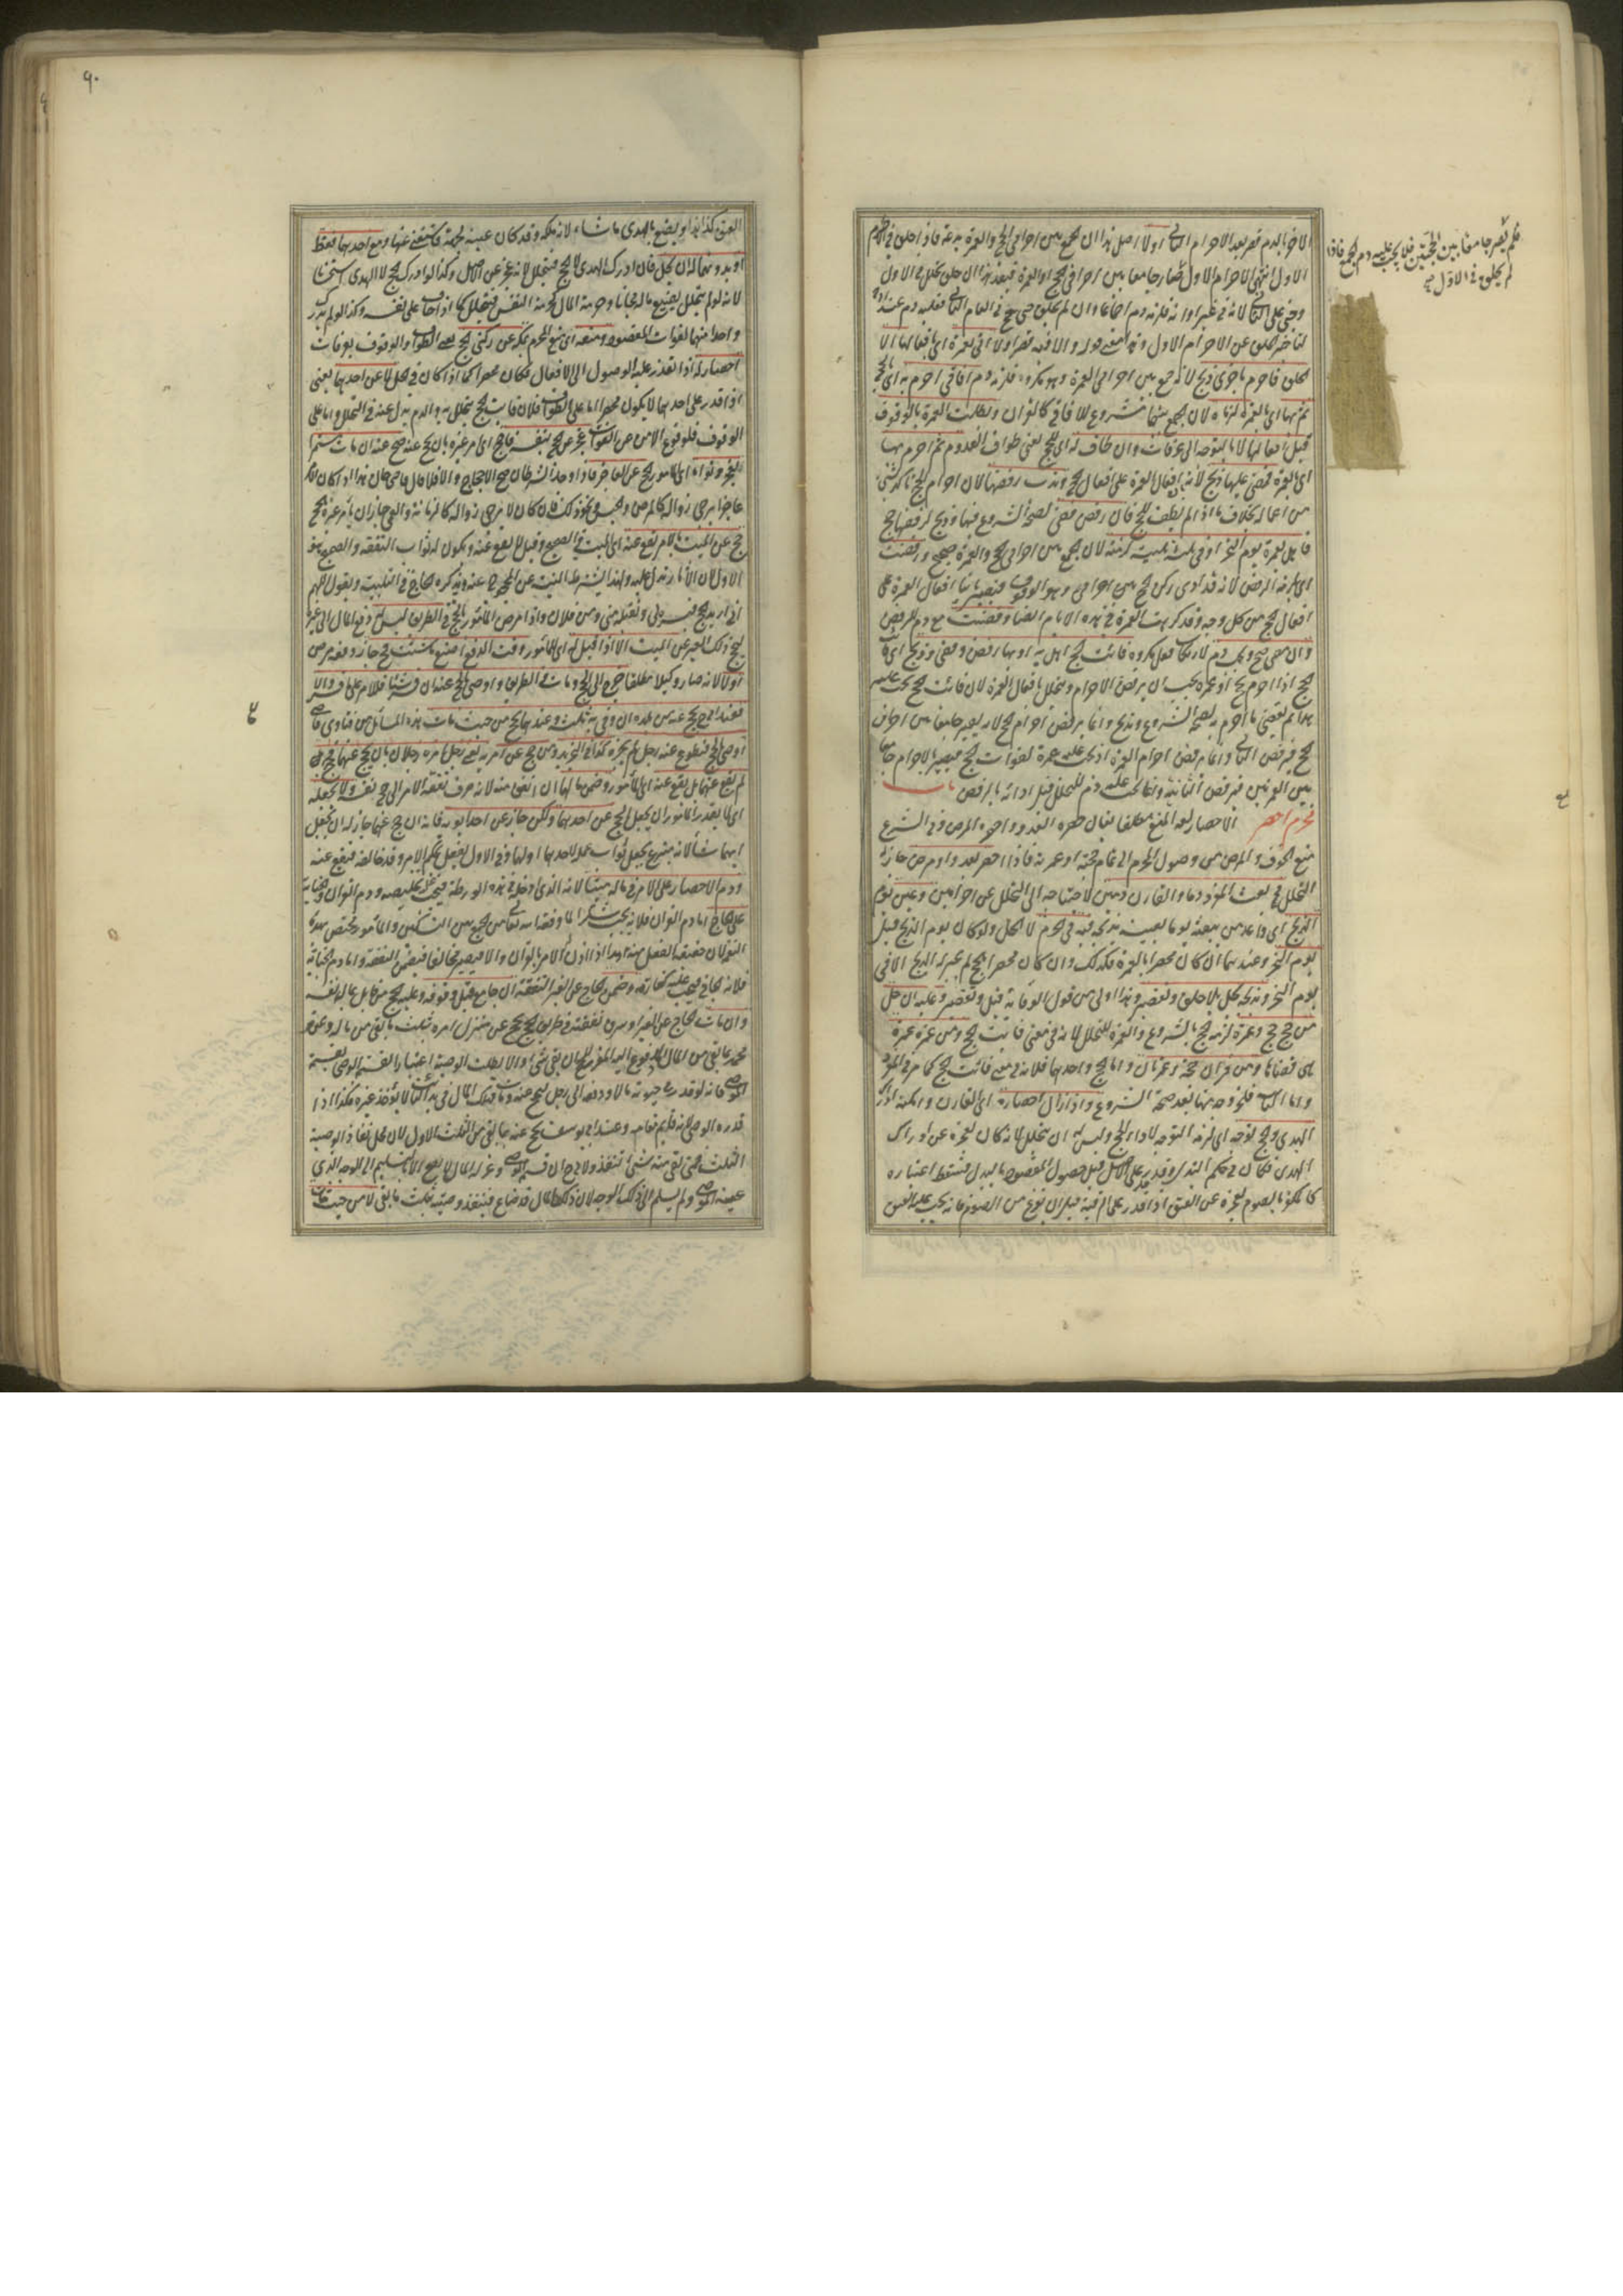 الاخر بالدم قصر بعد الاحرام الثاني اولا اصل هذا ان الجمع بين احرامي الحج والعمرة بدعة فاذا حلق في الاحرام
الاول انتهى الاحرام الاول فصار جامعا بين احرامي الحج او العمرة فبعد هذا ان حلق يحلل في الاول
وجنى على الثاني لانه في غير اوانه فلزمه دم اجماعا وان لم يحلق حتى حج في العام الثاني فعليه دم عنده
لتاخير الحلق عن الاحرام الاول وهذا معنى قوله والا فمعه قصر اولا اتى بعمرة اي بافعالها الا
الحلق فاحرم باخرى ذبح لانه جمع بين احرامي العمرة وهو مكروه فلزمه دم افاقي احرم به اي بالحج
ثم بها اي بالعمرة لزماه لان الجمع بينهما مشروع للافاقي كالقران وبطلت العمرة بالوقوف
قبل افعالها لا بالتوجه الى عرفات وان طاف له اي للحج يعني طواف القدوم ثم احرم بها
اي بالعمرة فمضى عليهما ذبح لانه بان افعال العمرة على افعال الحج وندب رفضها لان احرام الحج تاكد بشيء
من اعماله بخلاف ما اذا لم يطف للحج فان رفض قضى لصحة الشروع فيها وذبح لرفضها حج
فاهل بعمرة يوم النحر او في ثلثة يليه لزمته لان الجمع بين احرامي الحج والعمرة صحيح ورفضت
اي يلزمه الرفض لانه قد ادى ركن الحج من احرامي وهو الوقوف فيصير بانيا افعال العمرة على
افعال الحج من كل وجه وقد كرهت العمرة في هذه الايام ايضا وقضيت مع دم للرفض
وان مضى صح ويجب دم لارتكاب فعل مكروه فائت الحج اهل به او بها رفض وقضى وذبح اي فائت
الحج اذا احرم بحج او عمرة يجب ان يرفض الاحرام ويتحلل بافعال العمرة لان فائت الحج يجب عليه
هذا ثم يقضي ما احرم به لصحة الشروع ويذبح وانما يرفض احرام الحج لانه يصير جامعا بين احرامي
الحج فيرفض الثاني وانما يرفض احرام العمرة اذ يجب عليه عمرة لفوات الحج فيصير بالاحرام جامعا
بين العمرتين فيرفض الثانية وانما يجب عليه دم للتحلل قبل اوانه بالرفض باب
محرم احصر الاحصار لغة المنع مطلقا يقال حصره العدو واحصره المرض وفي الشرع
منع الخوف والمرض من وصول المحرم الى تمام حجته او عمرته فاذا احصر بعدو او مرض جاز له
التحلل فح بعث المفرد دما والقارن دمين لاحتياجه الى التحلل عن احرامين وعين يوم
الذبح اي واعد من يبعثه يوما بعينه يذبحه فيه في الحرم لا الحل ولو كان يوم الذبح قبل
يوم النحر وعندهما ان كان محصرا بالعمرة فكذلك وان كان محصرا بالحج لم يجز له الذبح الا في
يوم النحر وبذبحه يحل بلا حلق وتقصير وهذا اولى من قول الوقاية قبل وتقصير وعليه ان حل
من حج حج وعمرة لزمه الحج بالشروع والعمرة للتحلل لانه في معنى فائت الحج ومن عمرة عمرة
اي قضاؤها ومن قران حجة وعمرتان واما الحج واحدهما فلانه في معنى فائت الحج كما مر في المفرد
واما الثانية فلخروجه منها بعد صحة الشروع واذا زال احصاره اي القارن وامكنه ادراك
الهدي والحج توجه اي لزمه التوجه لاداء الحج وليس له ان يتحلل لانه كان لعجزه عن ادراك
الهدي فكان في حكم البدل وقد قدر على الاصل قبل حصول المقصود بالبدل فسقط اعتباره
كالمكفر بالصوم لعجزه عن العتق اذا قدر على الرقبة قبل ان يفرغ من الصوم فانه يجب عليه العتق
فلم يصر جامعا بين الحجتين فلا يجب عليه دم الجمع فاذا
لم يحلق في الاول صح
٩٠
العتق كذا هذا ويصنع بالهدي ما شاء لانه ملكه وقد كان عينه لجهة فاستغنى عنها ومع احدهما فقط
او بدونهما له ان يحل فان ادرك الهدي لا الحج فيتحلل لانه عجز عن الاصل وكذا لو ادرك الحج لا الهدي استحسانا
لانه لو لم يتحلل يضيع ماله مجانا وحرمة المال كحرمة النفس فيتحلل كما اذا خاف على نفسه وكذا لو لم يدرك
واحدا منهما لفوات المقصود ومنعه اي منع المحرم بمكة عن ركني الحج يعني الطواف والوقوف بعرفات
احصار له اذا تعذر عليه الوصول الى الافعال فكان محصرا كما اذا كان في الحل لا عن احدهما يعني
اذا قدر على احدهما لا يكون محصرا اما على الطواف فلان فائت الحج يتحلل به والدم بدل عنه في التحلل واما على
الوقوف فلوقوع الامن من الفوات عجز عن حج بنفسه فاحج اي امر غيره بان يحج عنه صح عنه ان مات مستمرا
العجز ونواه اي المامور الحج عن العاجز فاذا وجد الشرطان صح الاحجاج والا فلا قال قاضيخان هذا اذا كان
عاجزا يرجى زواله كالمرض والحبس ونحو ذلك فان كان لا يرجى زواله كالزمانة والعمى جاز ان يامر غيره بحج
حج عن الميت بالامر يقع عنه اي الميت في الصحيح وقيل لا يقع عنه ويكون له ثواب النفقة والصحيح هو
الاول لان الآثار تدل عليه ولهذا يشترط النية عن المحجوج عنه ويذكره الحاج في التلبية ويقول اللهم
اني اريد الحج فيسره لي وتقبله مني ومن فلان واذا مرض المامور بالحج في الطريق ليس له دفع المال الى غيره
ليحج ذلك الغير عن الميت الا اذا قيل له اي للمامور وقت الدفع اصنع ما شئت فح جاز دفعه مرض
او لا لانه صار وكيلا مطلقا خرج الى الحج ومات في الطريق واوصى بالحج عنه ان فسر شيئا فالامر على ما فسر والا
فعند ابي ح يحج عنه من بلده ان وفى به ثلثه وعندهما يحج من حيث مات هذه المسائل من فتاوى قاضيخان
اوصى بالحج فتطوع عنه رجل لم يجزه كذا في التجريد ومن حج عن آمريه يعني رجل امره رجلان بان يحج عنهما فحج عنهما
لم يقع عنهما بل يقع عنه اي المامور وضمن مالهما ان انفق منه لانه صرف نفقة الآمر الى حج نفسه ولا يجعله
اي لا يقدر المامور ان يجعل الحج عن احدهما ولكن جاز عن احد ابويه فانه ان حج عنهما جاز له ان يجعل
ايهما شاء لانه متبرع بجعل ثواب عمله لاحدهما اولهما وفي الاول يفعل بحكم الآمر وقد خالف فيقع عنه
ودم الاحصار على الآمر في ماله ميتا لانه الذي ادخله في هذه الورطة فيجب عليه تخليصه ودم القران والجناية
على الحاج اما دم القران فلانه يجب شكرا لما وفقه الله تعالى من الجمع بين النسكين والمامور مختص بهذه
النعمة لان حقيقة الفعل منه هذا اذا اذن الآمر بالقران والا فيصير مخالفا فيضمن النفقة واما دم الجناية
فلانه الجاني فيجب عليه كفارته وضمن الحاج عن الغير النفقة ان جامع قبل وقوفه وعليه الحج من قابل بمال نفسه
وان مات الحاج عن الغير او سرق نفقته في طريق الحج يحج عن منزل آمره بثلث ما بقي من ماله وعن
محمد بما بقي من المال المدفوع اليه المفرز للحج ان بقي شيء والا بطلت الوصية اعتبارا لقسمة الوصي بقسمة
الموصي فانه لو قدر في حيوته مالا ودفعه الى رجل ليحج عنه ومات فهلك المال في يد النائب لا يؤخذ غيره فكذا اذا
قدره الوصي لانه قايم مقامه وعند ابي يوسف يحج عنه بما بقي من الثلث الاول لان محل نفاذ الوصية
الثلث فمتى بقي منه شيء تنفذ ولابي ح ان قسمة الوصي وعزله المال لا يصح الا بالتسليم الى الوجه الذي
عينه الموصي ولم يسلم الى ذلك الوجه لان ذلك المال قد ضاع فتنفذ وصيته بثلث ما بقي لا من حيث مات